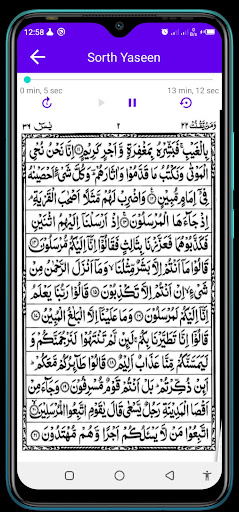 12:58
Sorth Yaseen
0 min, 5 sec
13 min, 12 sec
یٰسٓ ۳۶
۲
وَمَنْ یَّقْنُتْ ۲۲
بِالْغَیْبِ فَبَشِّرْهُ بِمَغْفِرَةٍ وَّاَجْرٍ كَرِیْمٍ ۝ اِنَّا نَحْنُ نُحْیِ
الْمَوْتٰی وَنَكْتُبُ مَا قَدَّمُوْا وَاٰثَارَهُمْ وَكُلَّ شَیْءٍ اَحْصَیْنٰهُ
فِیْۤ اِمَامٍ مُّبِیْنٍ ۝ وَاضْرِبْ لَهُمْ مَّثَلًا اَصْحٰبَ الْقَرْیَةِ
اِذْ جَآءَهَا الْمُرْسَلُوْنَ ۝ اِذْ اَرْسَلْنَاۤ اِلَیْهِمُ اثْنَیْنِ
فَكَذَّبُوْهُمَا فَعَزَّزْنَا بِثَالِثٍ فَقَالُوْۤا اِنَّاۤ اِلَیْكُمْ مُّرْسَلُوْنَ ۝
قَالُوْا مَاۤ اَنْتُمْ اِلَّا بَشَرٌ مِّثْلُنَا وَمَاۤ اَنْزَلَ الرَّحْمٰنُ مِنْ
شَیْءٍ اِنْ اَنْتُمْ اِلَّا تَكْذِبُوْنَ ۝ قَالُوْا رَبُّنَا یَعْلَمُ
اِنَّاۤ اِلَیْكُمْ لَمُرْسَلُوْنَ ۝ وَمَا عَلَیْنَاۤ اِلَّا الْبَلٰغُ الْمُبِیْنُ ۝
قَالُوْۤا اِنَّا تَطَیَّرْنَا بِكُمْ لَئِنْ لَّمْ تَنْتَهُوْا لَنَرْجُمَنَّكُمْ وَ
لَیَمَسَّنَّكُمْ مِّنَّا عَذَابٌ اَلِیْمٌ ۝ قَالُوْا طَآئِرُكُمْ مَّعَكُمْ
اَئِنْ ذُكِّرْتُمْ بَلْ اَنْتُمْ قَوْمٌ مُّسْرِفُوْنَ ۝ وَجَآءَ مِنْ
اَقْصَا الْمَدِیْنَةِ رَجُلٌ یَّسْعٰی قَالَ یٰقَوْمِ اتَّبِعُوا الْمُرْسَلِیْنَ ۝
اتَّبِعُوْا مَنْ لَّا یَسْئَلُكُمْ اَجْرًا وَّهُمْ مُّهْتَدُوْنَ ۝